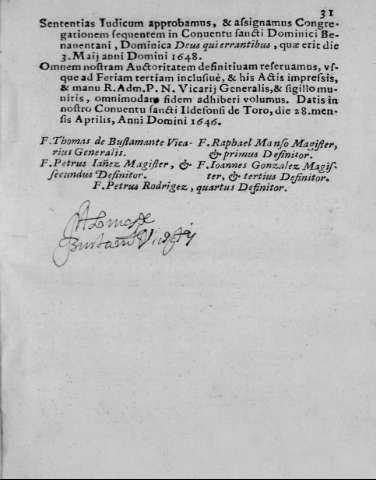 31
Sententias Iudicum approbamus, & assignamus Congre-
gationem sequentem in Conuentu sancti Dominici Be-
nauentani, Dominica Deus qui errantibus, quæ erit die
3. Maij anni Domini 1648.
Omnem nostram Auctoritatem definitiuam reseruamus, vs-
que ad Feriam tertiam inclusiuè, & his Actis impressis,
& manu R. Adm. P. N. Vicarij Generalis, & sigillo mu-
nitis, omnimodam fidem adhiberi volumus. Datis in
nostro Conuentu sancti Ildefonsi de Toro, die 28. men-
sis Aprilis, Anni Domini 1646.
F. Thomas de Bustamante Vica-
rius Generalis.
F. Raphael Manso Magister,
& primus Definitor.
F. Petrus Iañez Magister, &
secundus Definitor.
F. Ioannes Gonzalez Magis-
ter, & tertius Definitor.
F. Petrus Rodrigez, quartus Definitor.